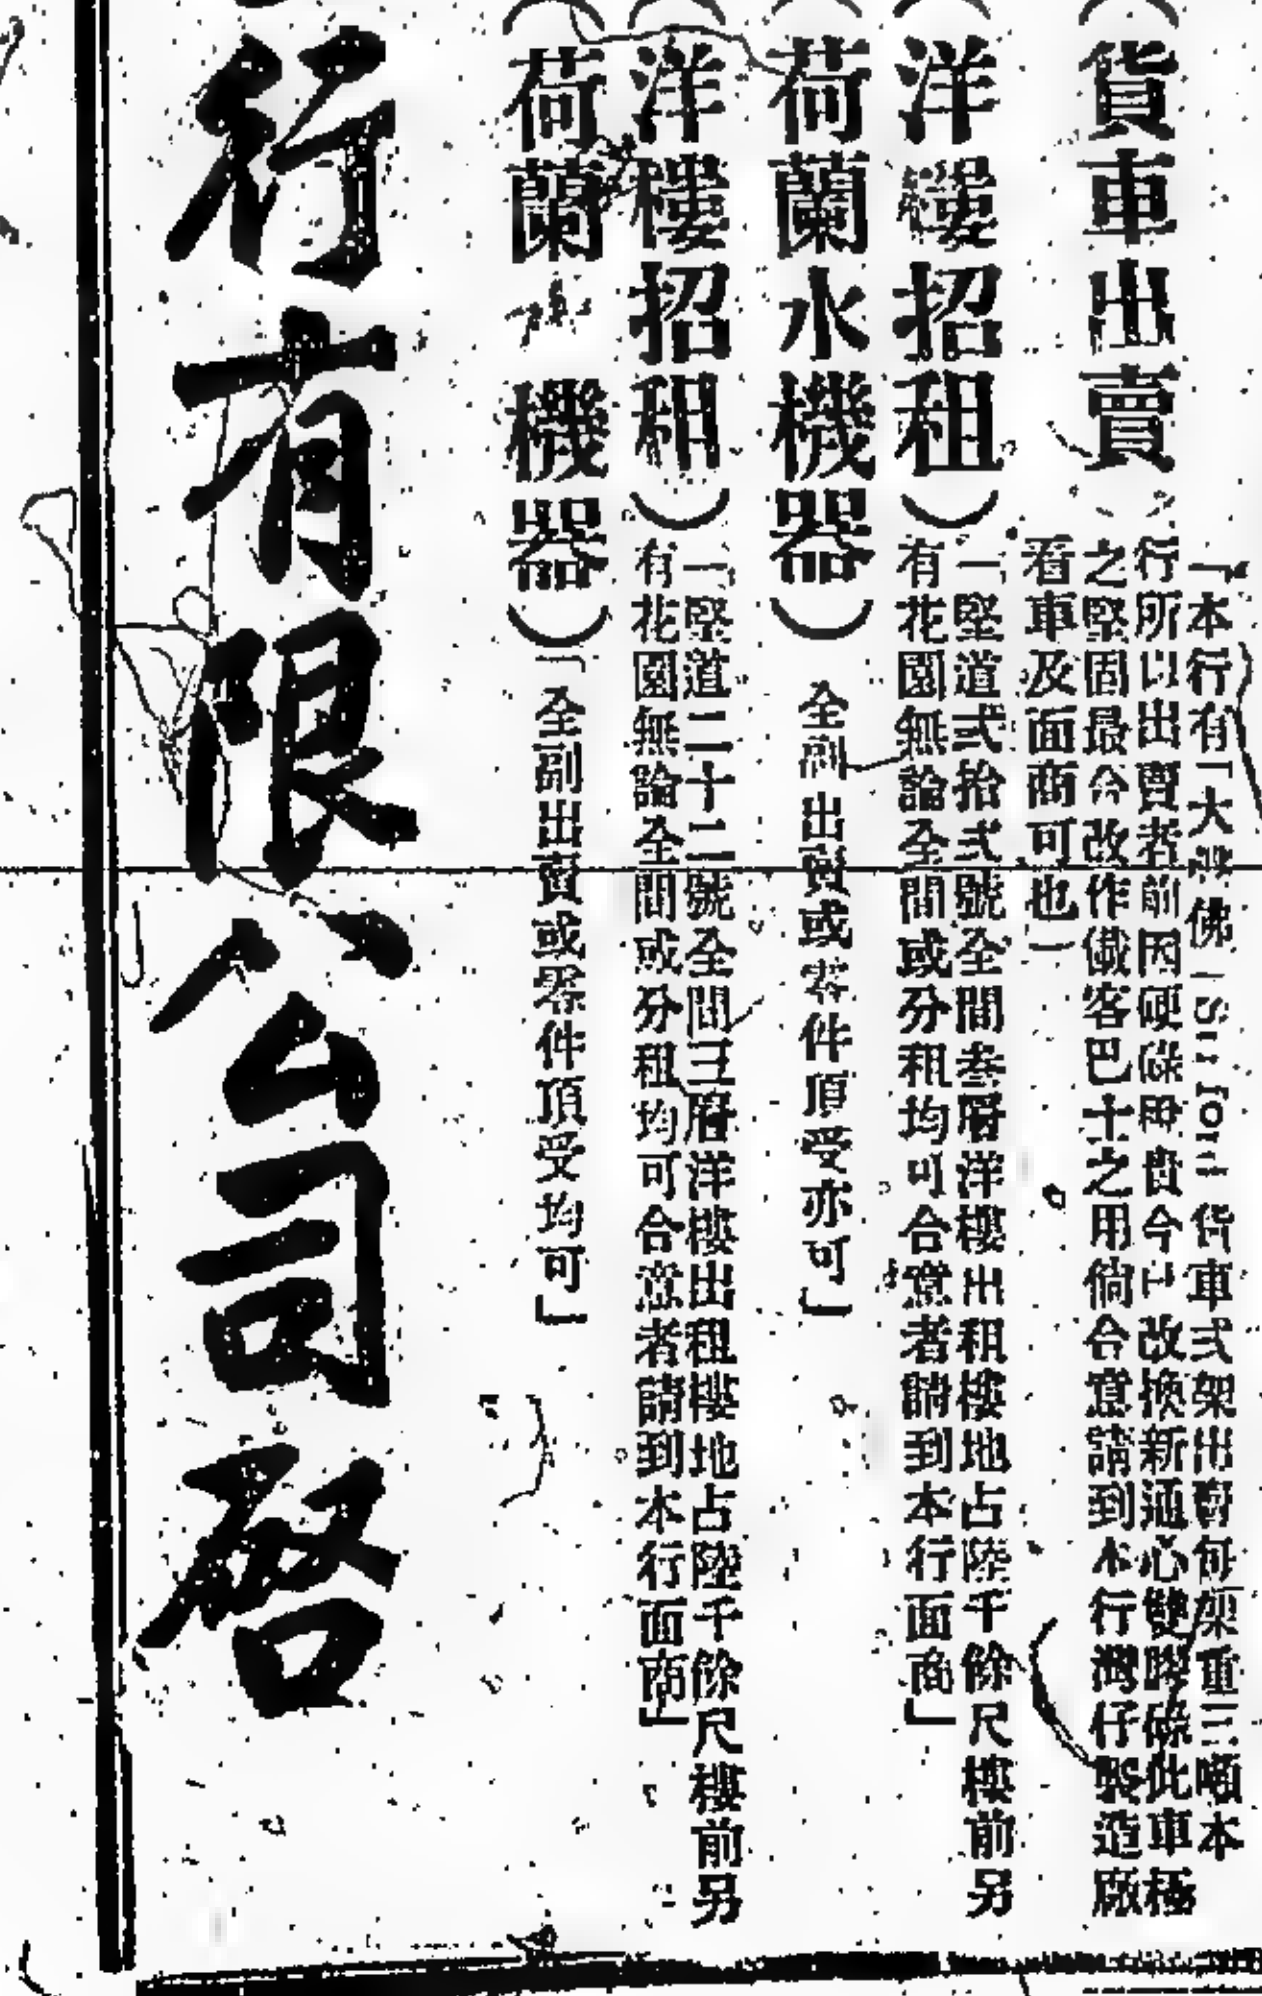 (貨車出賣)
「本行有「大□佛」貨車式架出賣每架重三噸本
行所以出賣者前因硬碌□貴今已改換新通心雙膠碌此車極
之堅固最合改作儎客巴士之用倘合意請到本行灣仔製造廠
看車及面商可也」
(洋樓招租)
一堅道弍拾弍號全間叁層洋樓出租樓地占陸千餘尺樓前另
有花園無論全間或分租均可合意者請到本行面商」
(荷蘭水機器)
全副出賣或零件頂受亦可」
(洋樓招租)
「堅道二十二號全間三層洋樓出租樓地占陸千餘尺樓前另
有花園無論全間或分租均可合意者請到本行面商」
(荷蘭 機器)
「全副出賣或零件頂受均可」
行有限公司啓